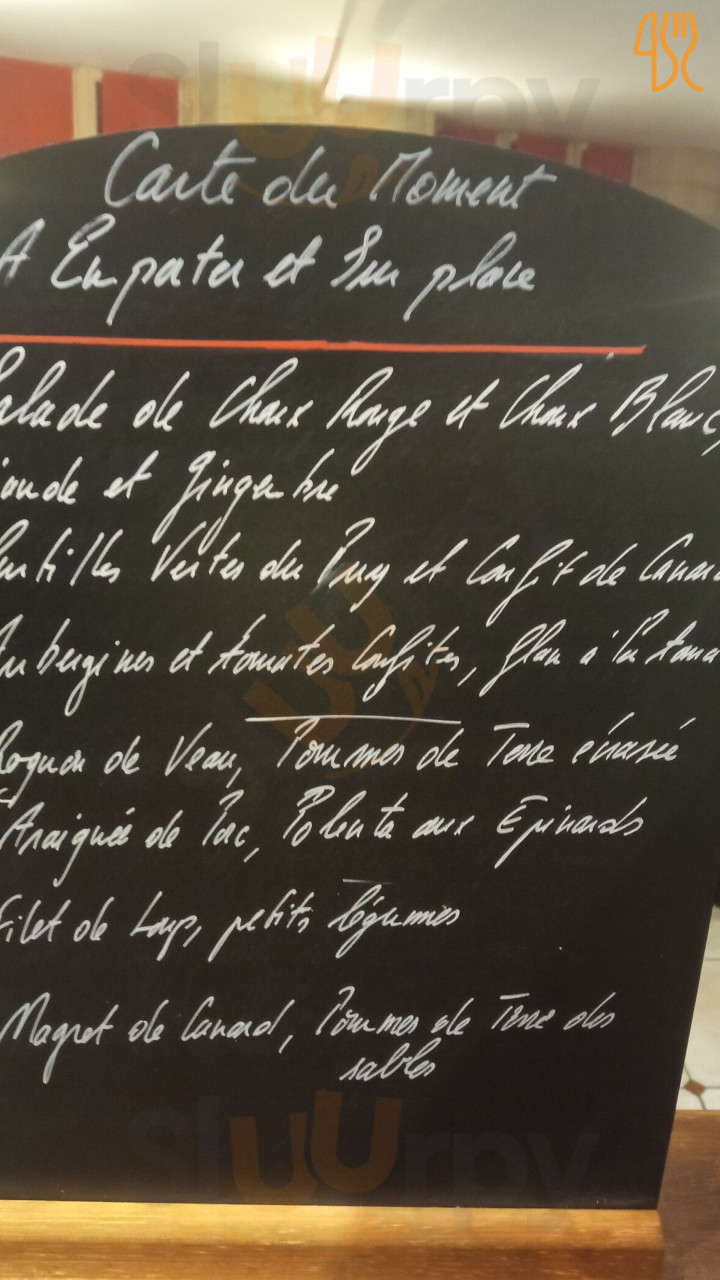 Sluurpy
Carte du Moment
A Emporter et Sur place
alade de Choux Rouge et Choux Blanc,
et Gingembre
entilles Vertes du Puy et Confit de Canar
Aubergines et tomates Confites, flan à la toma
Rognon de Veau, Pommes de Terre écrasée
Araignée de Porc, Polenta aux Epinards
Filet de Loup, petits légumes
Magret de Canard, Pommes de Terre des
sables
Sluurpy